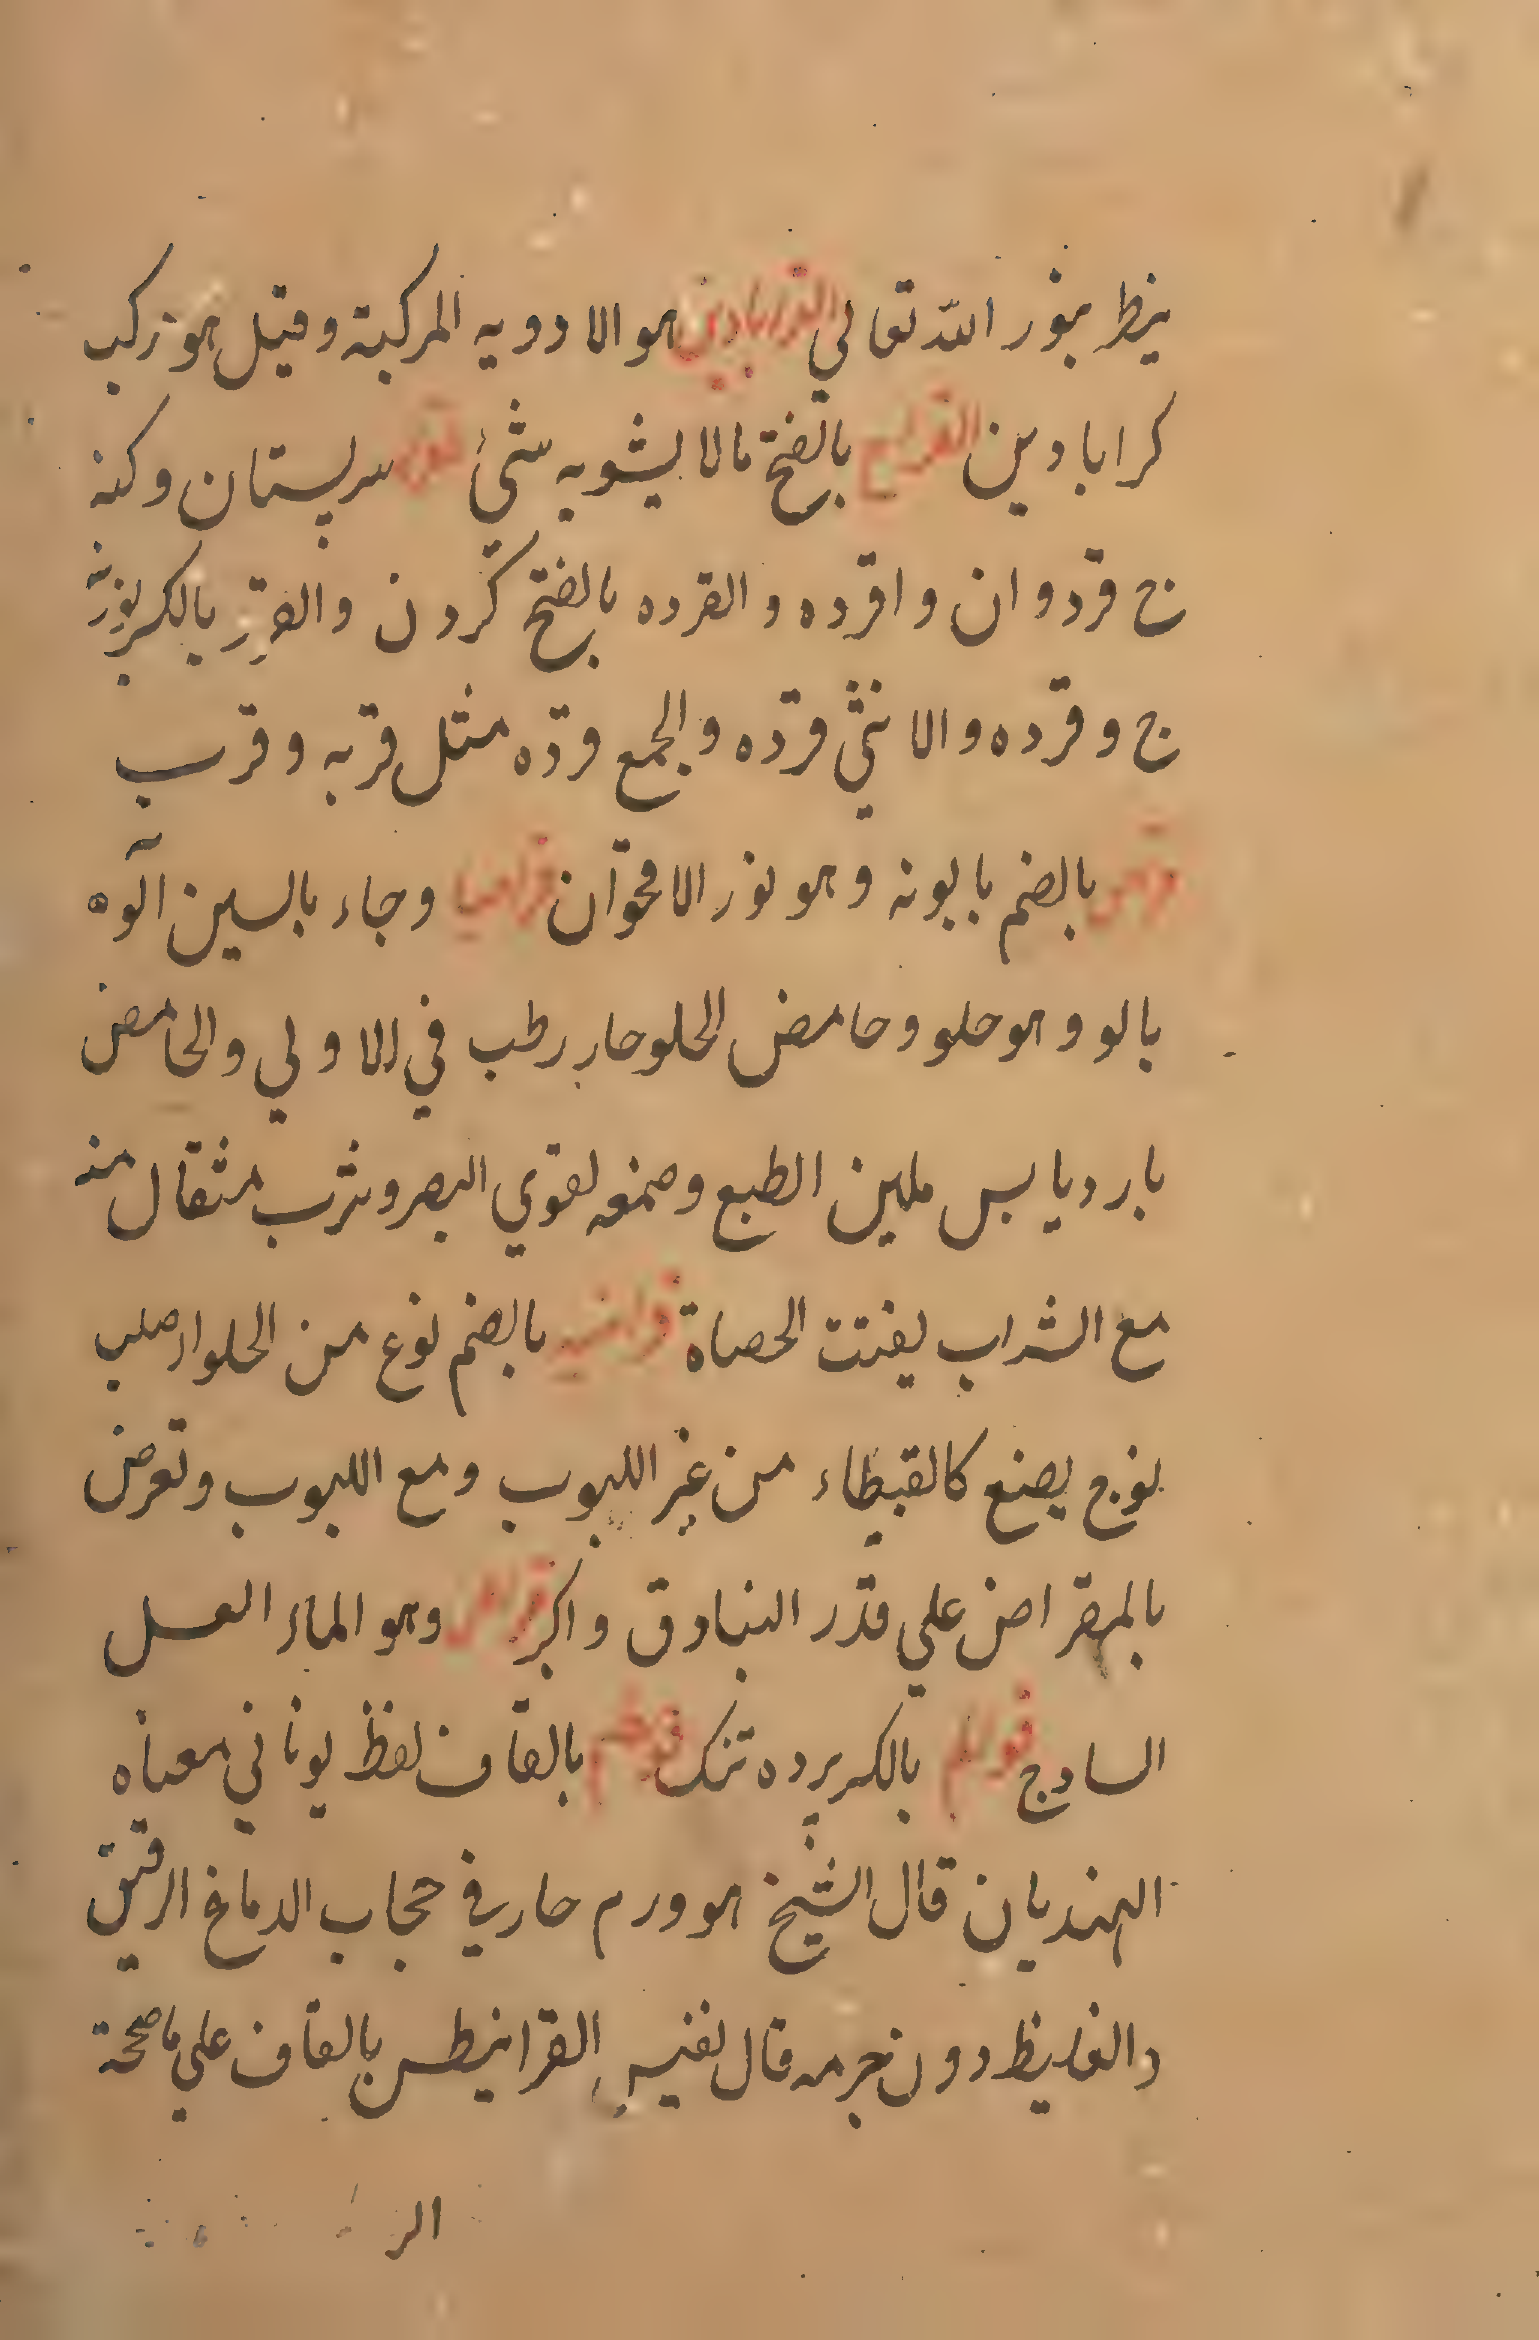 ينظر بنور الله تعالي القرابادين هو الادويه المركبة وقيل هو تركيب
كرابادين القراح بالفتح مالا يشوبه شئ سرپستان وكنه
ج قردوان واقرده والقرده بالفتح كردن والقرد بالكسر بوزنه
ج وقرده والانثي قرده والجمع قرده مثل قربه وقرب
بالضم بابونه وهو نور الاقحوان قراصيا وجاء بالسين آلوه
بالو وهو حلو وحامض الحلو حار رطب في الاولي والحامض
بارد يابس ملين الطبع وصمغه لقوي البصر وشرب مثقال منه
مع الشراب يفتت الحصاة بالضم نوع من الحلواء صلب
يصنع كالقبيطاء من غير اللبوب ومع اللبوب وتعرض
بالمقراض علي قدر البنادق واكبر وهو الماء العسل
السادج بالكسر پرده تنك بالقاف لفظ يوناني معناه
الهنديان قال الشيخ هو ورم حار في حجاب الدماغ الرقيق
والغليظ دون جرمه قال نفيس القرانيطس بالقاف علي ما صححة